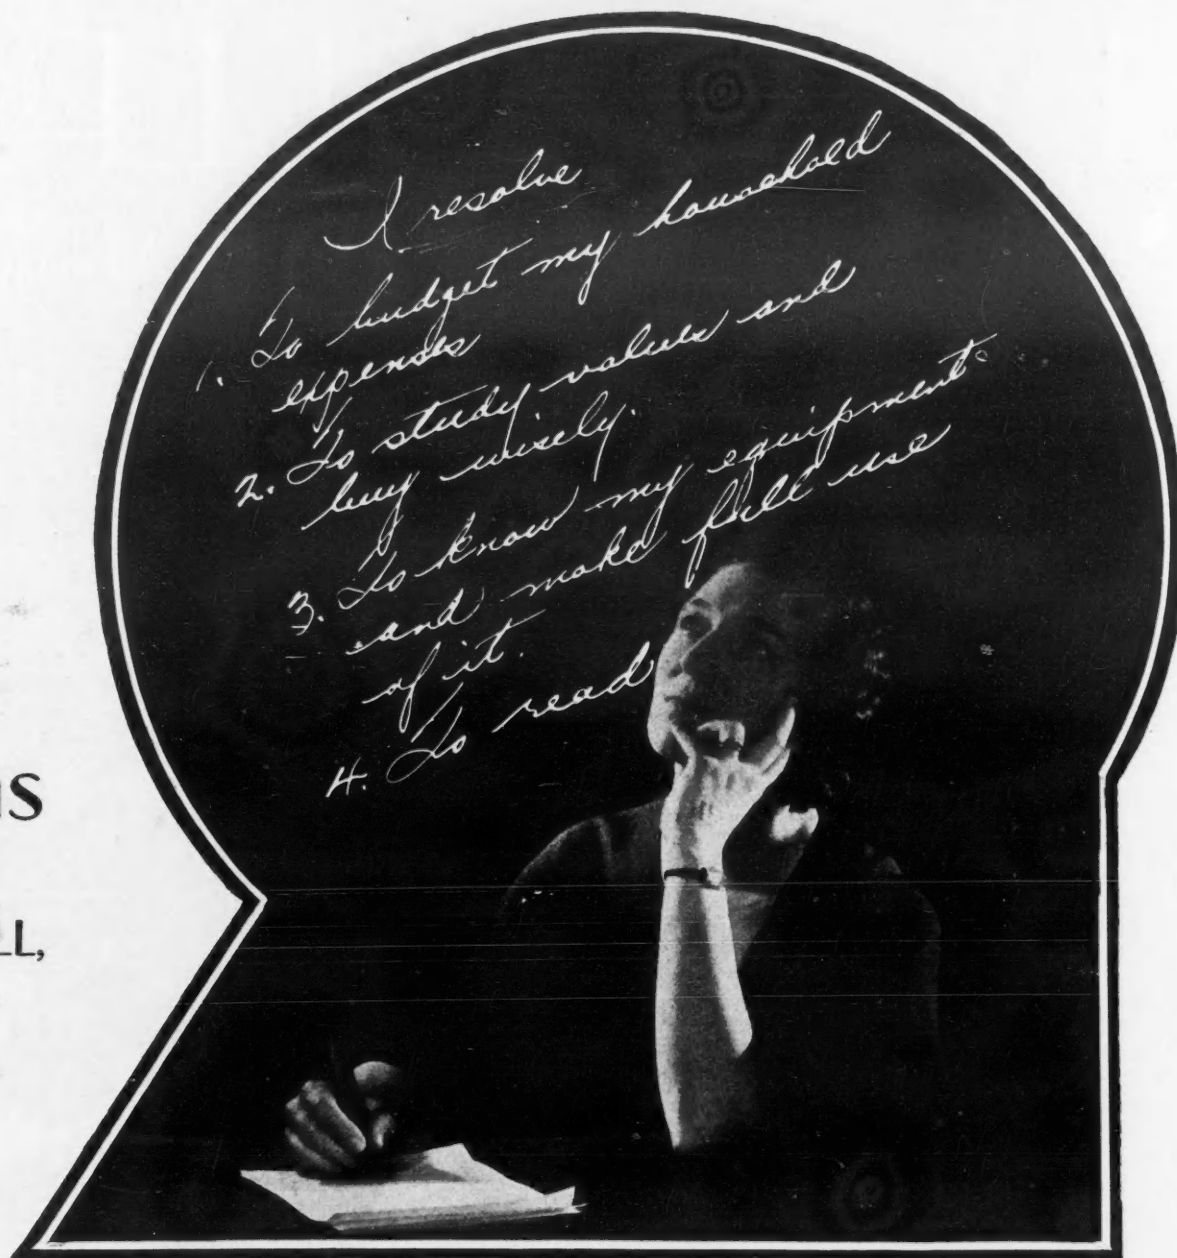 I resolve
1. To budget my household
expenses
2. To study values and
buy wisely.
3. To know my equipment
and make full use
of it.
4. To read